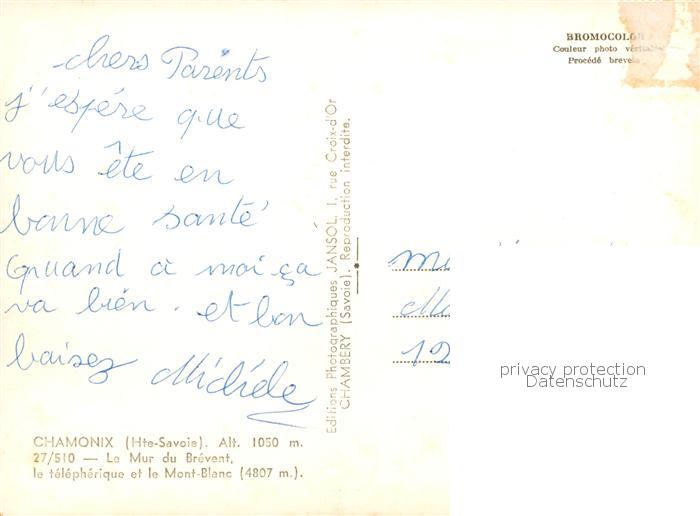 chers Parents
j'espére que
vous ête en
bonne santé
Quand à moi ça
va bien. et bon
baisez Michéle
CHAMONIX (Hte-Savoie). Alt. 1050 m.
27/510 — Le Mur du Brévent,
le téléphérique et le Mont-Blanc (4807 m.).
Editions Photographiques JANSOL, 1, rue Croix-d'Or
CHAMBERY (Savoie). Reproduction interdite.
BROMOCOLOR
Couleur photo
Procédé
privacy protection
Datenschutz